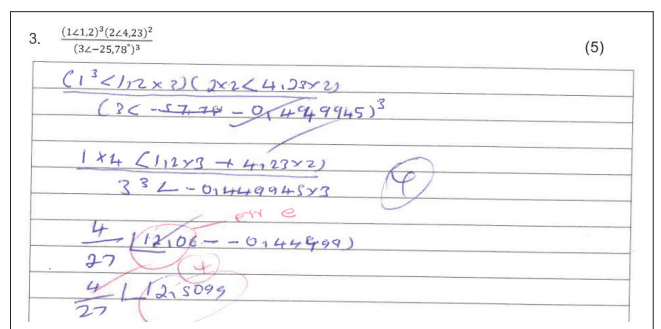 3. (1∠1,2)³(2∠4,23)² / (3∠−25,78°)³ (5)
(1³∠1,2×3)(2×2∠4,23×2)
(3∠ - 0,449945)³
1×4 ∠1,2×3 + 4,23×2)
3³∠-0,449945×3
4 ∠12,06--0,44999)
27
4 ∠12,5099
27